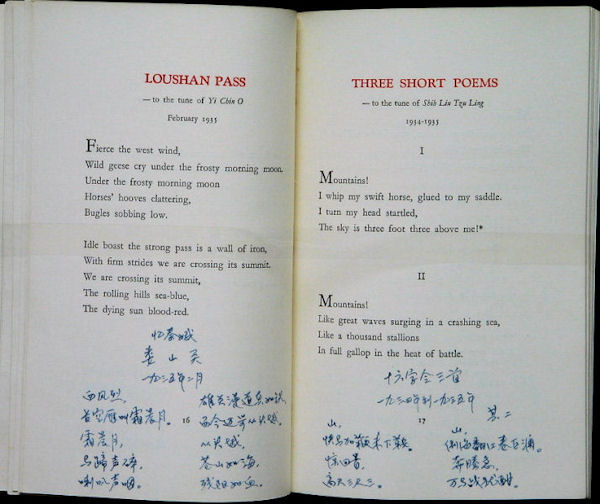 LOUSHAN PASS
— to the tune of Yi Chin O
February 1935
Fierce the west wind,
Wild geese cry under the frosty morning moon.
Under the frosty morning moon
Horses' hooves clattering,
Bugles sobbing low.
Idle boast the strong pass is a wall of iron,
With firm strides we are crossing its summit.
We are crossing its summit,
The rolling hills sea-blue,
The dying sun blood-red.
忆秦娥
娄山关
一九三五年二月
西风烈,
长空雁叫霜晨月。
霜晨月,
马蹄声碎,
喇叭声咽。
雄关漫道真如铁
而今迈步从头越。
从头越,
苍山如海,
残阳如血。
16
THREE SHORT POEMS
— to the tune of Shih Liu Tzu Ling
1934-1935
I
Mountains!
I whip my swift horse, glued to my saddle.
I turn my head startled,
The sky is three foot three above me!*
II
Mountains!
Like great waves surging in a crashing sea,
Like a thousand stallions
In full gallop in the heat of battle.
十六字令三首
一九三四年到一九三五年
山,
快马加鞭未下鞍。
惊回首,
离天三尺三。
其二
山,
倒海翻江卷巨澜。
奔腾急,
万马战犹酣
17